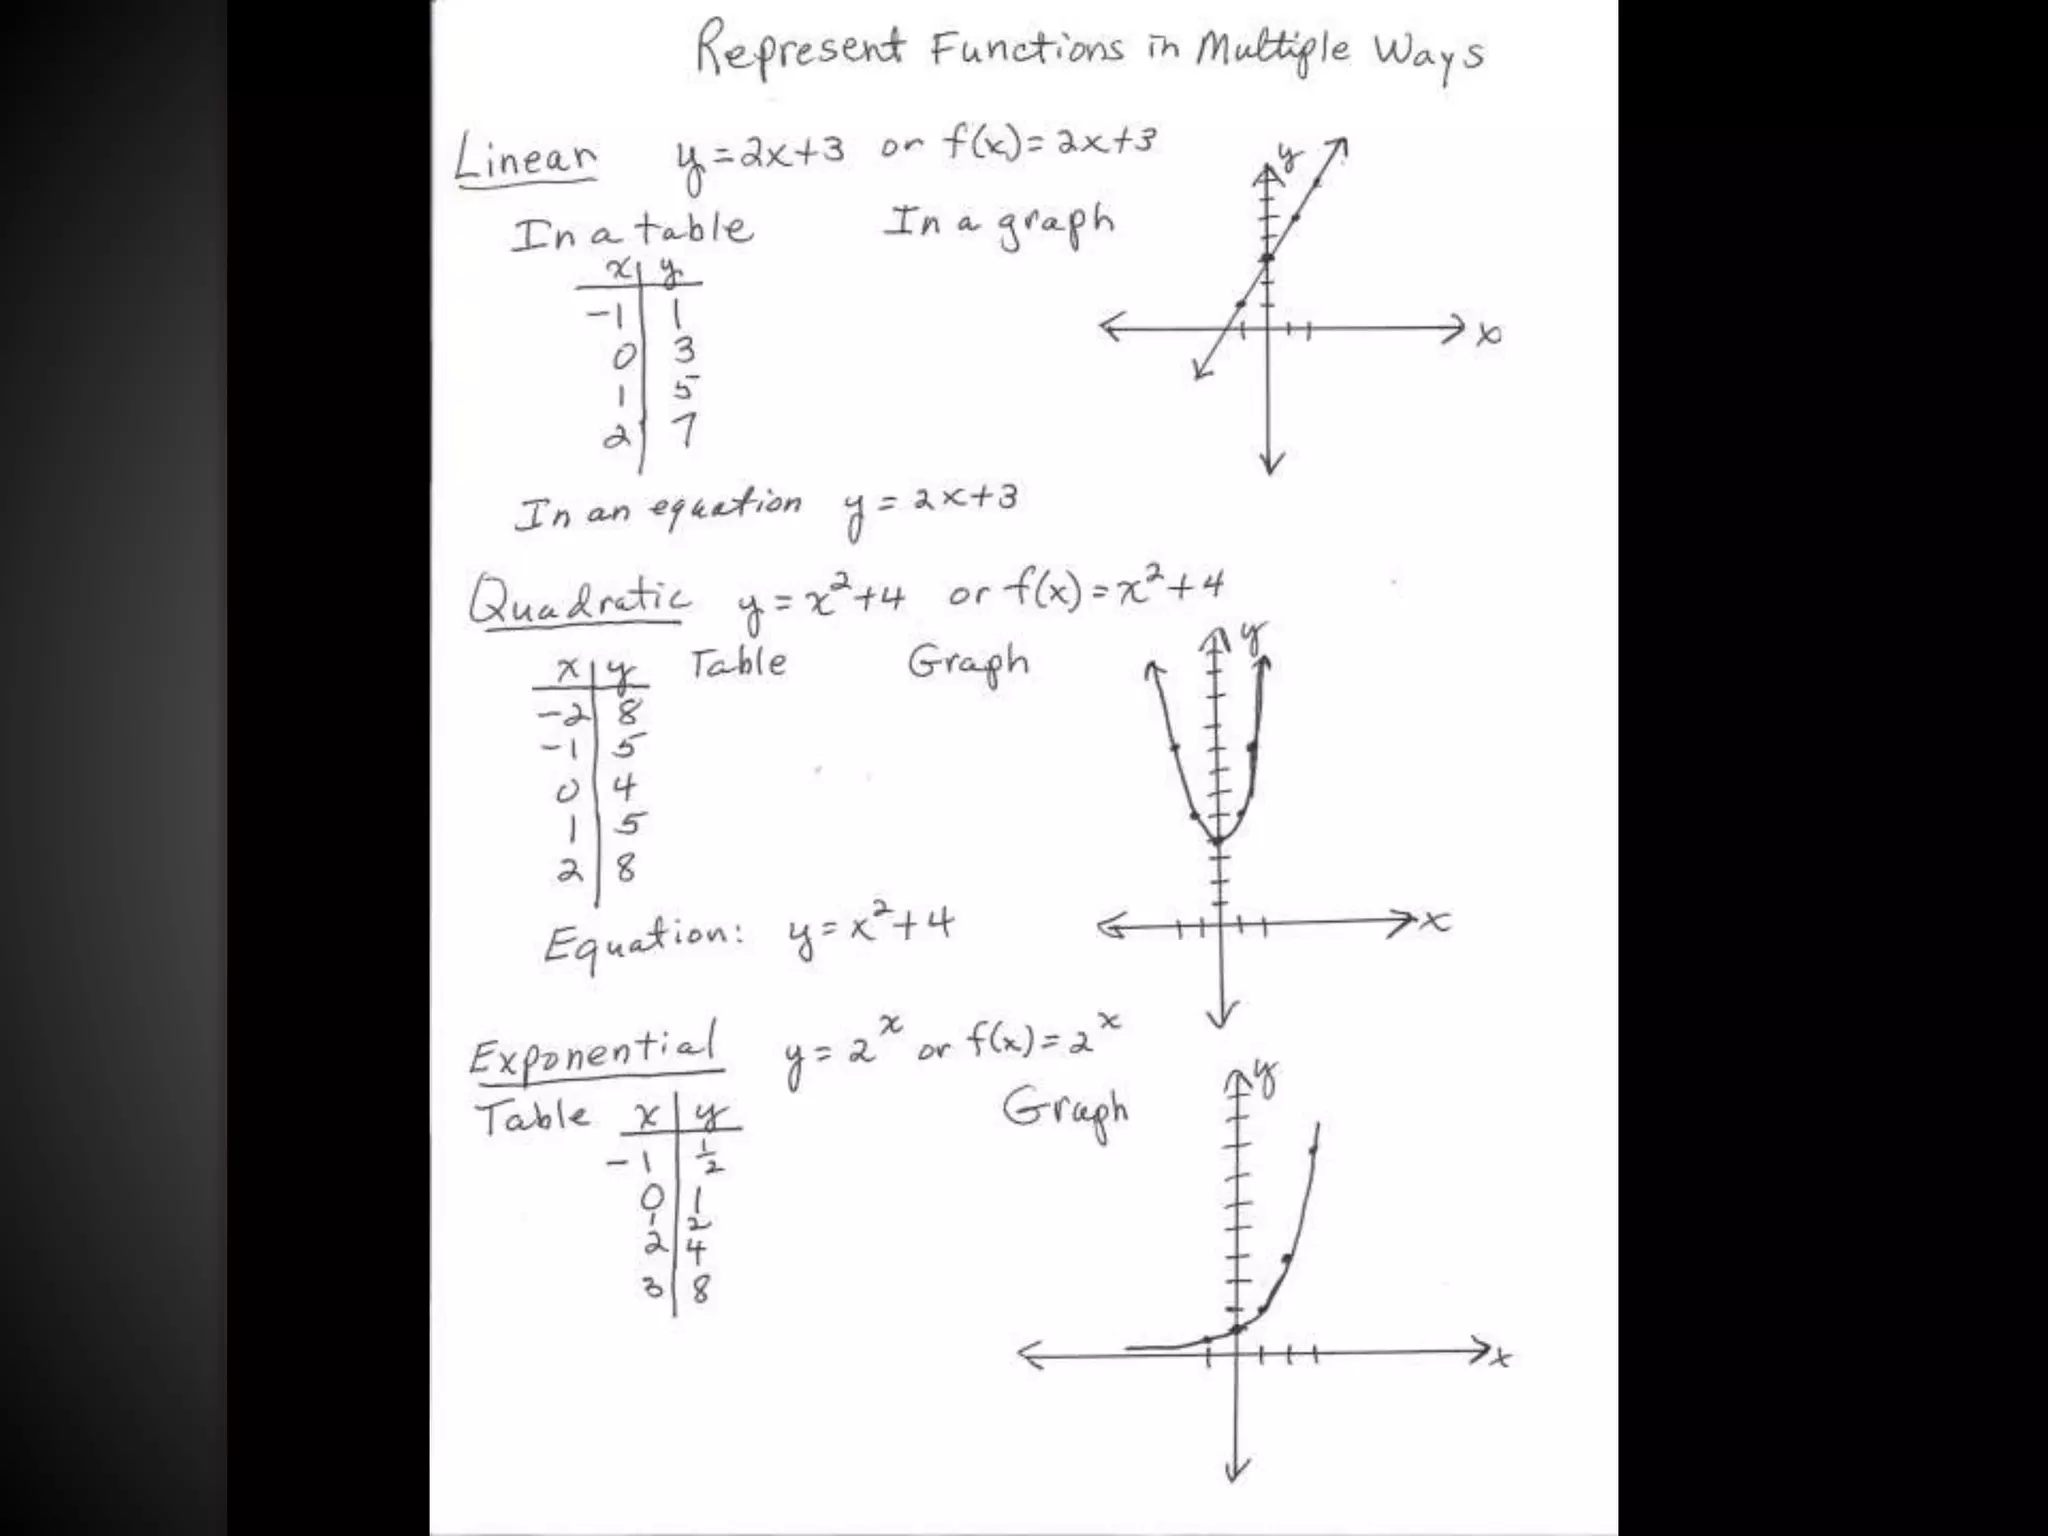 Represent Functions in Multiple Ways
Linear y=2x+3 or f(x)=2x+3
In a table In a graph
x y
-1 1
0 3
1 5
2 7
y
x
In an equation y=2x+3
Quadratic y=x²+4 or f(x)=x²+4
x y Table Graph
-2 8
-1 5
0 4
1 5
2 8
y
x
Equation: y=x²+4
Exponential y=2ˣ or f(x)=2ˣ
Table x y Graph
-1 1/2
0 1
1 2
2 4
3 8
y
x